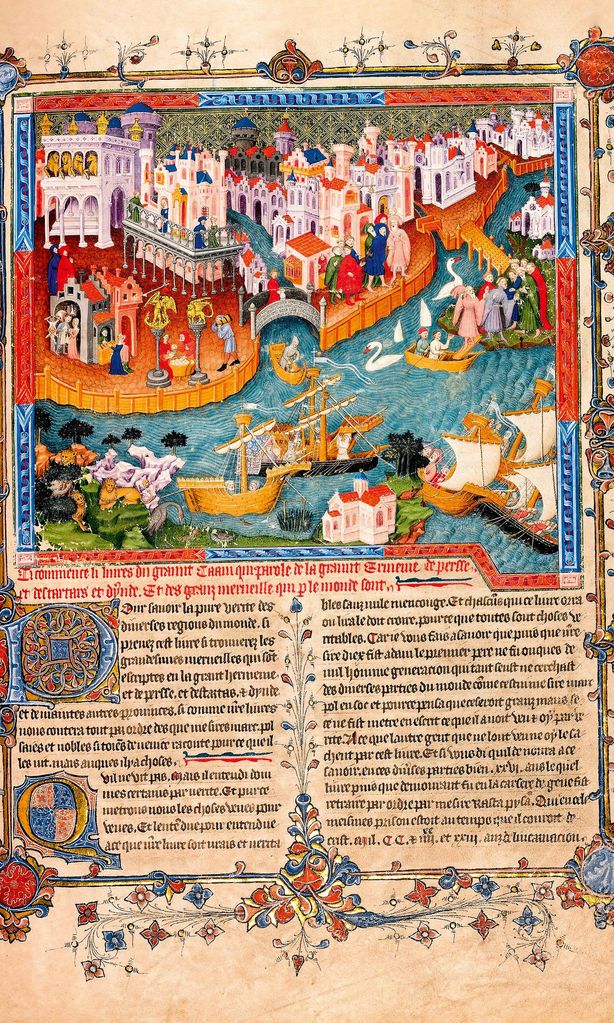 Ci commence li liures du graunt Caam qui parole de la graunt Ermenie de persse
et des tartars et dynde. Et des granz merueilles qui p le monde sont.
Pour sauoir la pure verite des
diuerses regions du monde. si
prenez cest liure si trouuerez les
grandesimes merueilles qui sont
escriptes en la grant hermenie
et de persse, et des tartars, & dynde
et de maintes autres prouinces, si comme nre liures
nous contera tout par ordre des que messire marc pol
saies et nobles citoiens de uenice raconte pource que il
les uit. mais auques il y a choses
Quil ne vit pas. Mais il entendi dou
mes certains par uerite. Et pource
metrons nous les choses veues pour
veues. Et lentendue pour entendue
a ce que nre liure soit urais et uerita
bles sanz nule mencouge. Et chascuns qui ce liure orra
ou lira le doit croire, pource que toutes sont choses ve
ritables. Car ie vous faiz a sauoir que puis que nre
sire diex fist adam le premier pere ne fu onques de
nul homme generation qui tant seust ne cerchast
des diuerses parties du monde come cestui messire marc
pol en soe et pource pensa que ce seroit granz maus se
ce ne fist metre en escrit ce que il auoit veu & oy par ve
rite. A ce que lautre gent que ne lont veu ne oy le sa
chent par cest liure. Et si vous di quil demora a ce
sauoir, en ces diuses parties bien .xxvi. ans le quel
liure puis que demourant fu en la carsere de gene fist
retraire par ordre par mesire Rasta pysan Qui en cele
meismes prison estoit au temps que il couroit de
crist. Mil. CC. & iiii. xx et xviii. anz de lincarnacion.